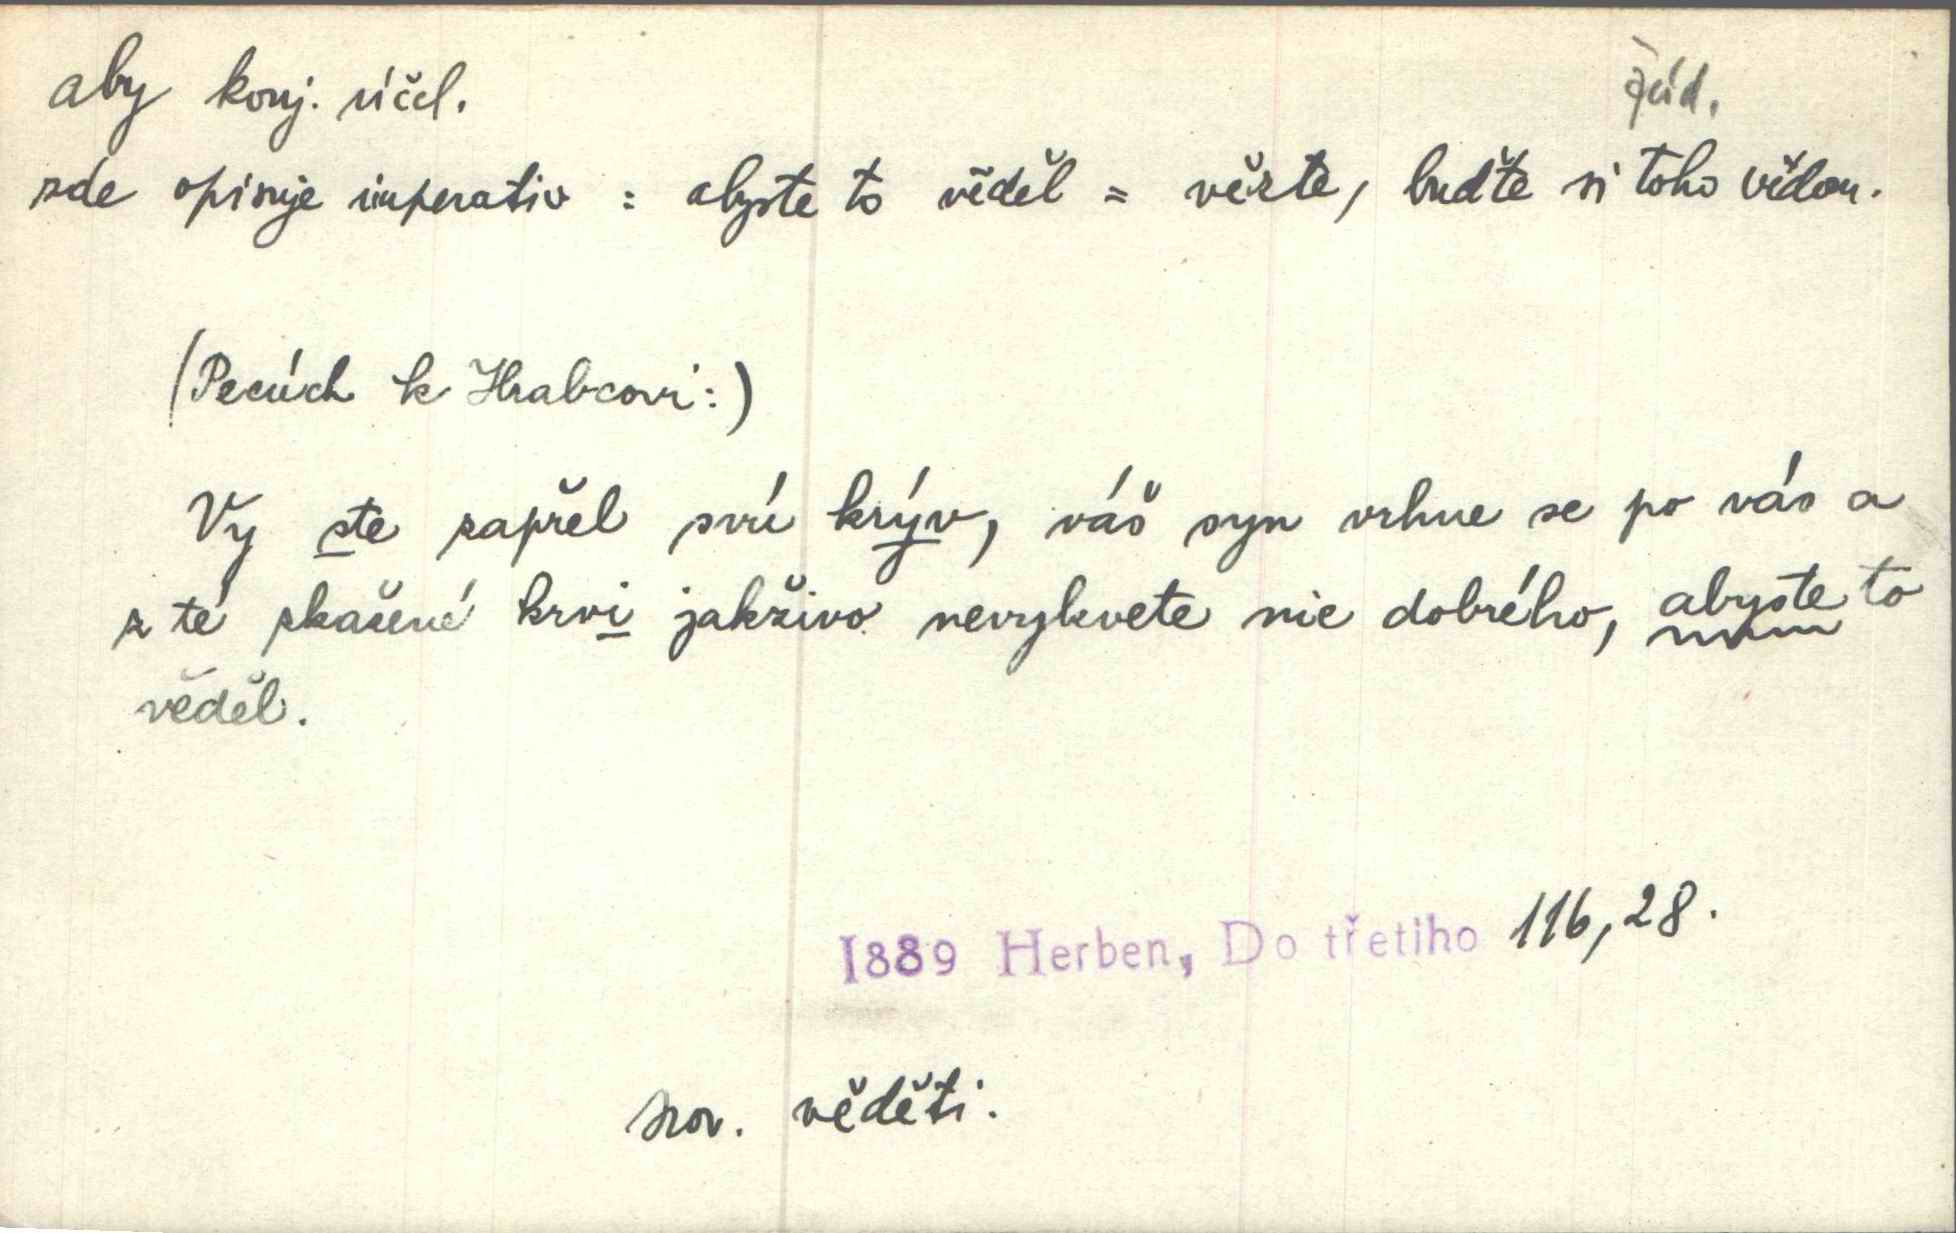 aby konj. účel.
řid.
zde opisuje imperativ : abyste to věděl = věřte, buďte si toho vědom.
(Pecúch k Hrabcovi:)
Vy ste zapřel svú krýv, váš syn vrhne se po vás a
z té zkažené krvi jakživo nevykvete nic dobrého, abyste to
věděl.
1889 Herben, Do třetího 116,28.
srov. věděti.